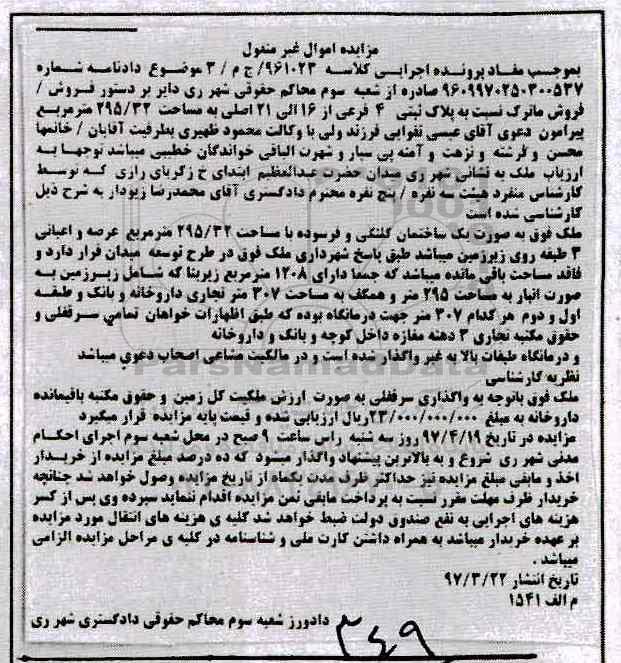 مزایده اموال غیر منقول
بموجب مفاد پرونده اجرایی کلاسه ۹۶۱۰۲۳/ ج م / ۳ موضوع دادنامه شماره
۹۶۰۹۹۷۰۲۵۰۳۰۰۵۳۷ صادره از شعبه سوم محاکم حقوقی شهر ری دایر بر دستور فروش /
فروش ماترک نسبت به پلاک ثبتی ۴ فرعی از ۱۶ الی ۲۱ اصلی به مساحت ۲۹۵/۳۲ مترمربع
پیرامون دعوی آقای عیسی تقوایی فرزند ولی با وکالت محمود ظهیری بطرفیت آقایان / خانمها
محسن و فرشته و نزهت و آمنه پی سپار و شهرت الباقی خواندگان خطیبی میباشد توجها به
ارزیاب ملک به نشانی شهر ری میدان حضرت عبدالعظیم ابتدای خ زکریای رازی که توسط
کارشناس منفرد هیئت سه نفره / پنج نفره محترم دادگستری آقای محمدرضا زیودار به شرح ذیل
کارشناسی شده است
ملک فوق به صورت یک ساختمان کلنگی و فرسوده با مساحت ۲۹۵/۳۲ مترمربع عرصه و اعیانی
۳ طبقه روی زیرزمین میباشد طبق پاسخ شهرداری ملک فوق در طرح توسعه میدان قرار دارد و
فاقد مساحت باقی مانده میباشد که جمعا دارای ۱۲۰۸ مترمربع زیربنا که شامل زیرزمین به
صورت انبار به مساحت ۲۹۵ متر و همکف به مساحت ۳۰۷ متر تجاری داروخانه و بانک و طبقه
اول و دوم هر کدام ۳۰۷ متر جهت درمانگاه بوده که طبق اظهارات خواهان تمامی سرقفلی و
حقوق مکتبه تجاری ۳ دهنه مغازه داخل کوچه و بانک و داروخانه
و درمانگاه طبقات بالا به غیر واگذار شده است و در مالکیت مشاعی اصحاب دعوی میباشد
نظریه کارشناسی
ملک فوق باتوجه به واگذاری سرقفلی به صورت ارزش ملکیت کل زمین و حقوق مکتبه باقیمانده
داروخانه به مبلغ ۲۳/۰۰۰/۰۰۰/۰۰۰ریال ارزیابی شده و قیمت پایه مزایده قرار میگیرد
مزایده در تاریخ ۹۷/۴/۱۹ روز سه شنبه راس ساعت ۹ صبح در محل شعبه سوم اجرای احکام
مدنی شهر ری شروع و به بالاترین پیشنهاد واگذار میشود که ده درصد مبلغ مزایده از خریدار
اخذ و مابقی مبلغ مزایده نیز حداکثر ظرف مدت یکماه از تاریخ مزایده وصول خواهد شد چنانچه
خریدار ظرف مهلت مقرر نسبت به پرداخت مابقی ثمن مزایده اقدام ننماید سپرده وی پس از کسر
هزینه های اجرایی به نفع صندوق دولت ضبط خواهد شد کلیه ی هزینه های انتقال مورد مزایده
بر عهده خریدار میباشد به همراه داشتن کارت ملی و شناسنامه در کلیه ی مراحل مزایده الزامی
میباشد .
تاریخ انتشار ۹۷/۳/۲۲
م الف ۱۵۴۱
دادورز شعبه سوم محاکم حقوقی دادگستری شهر ری
۳۴۹
ParsNamadData